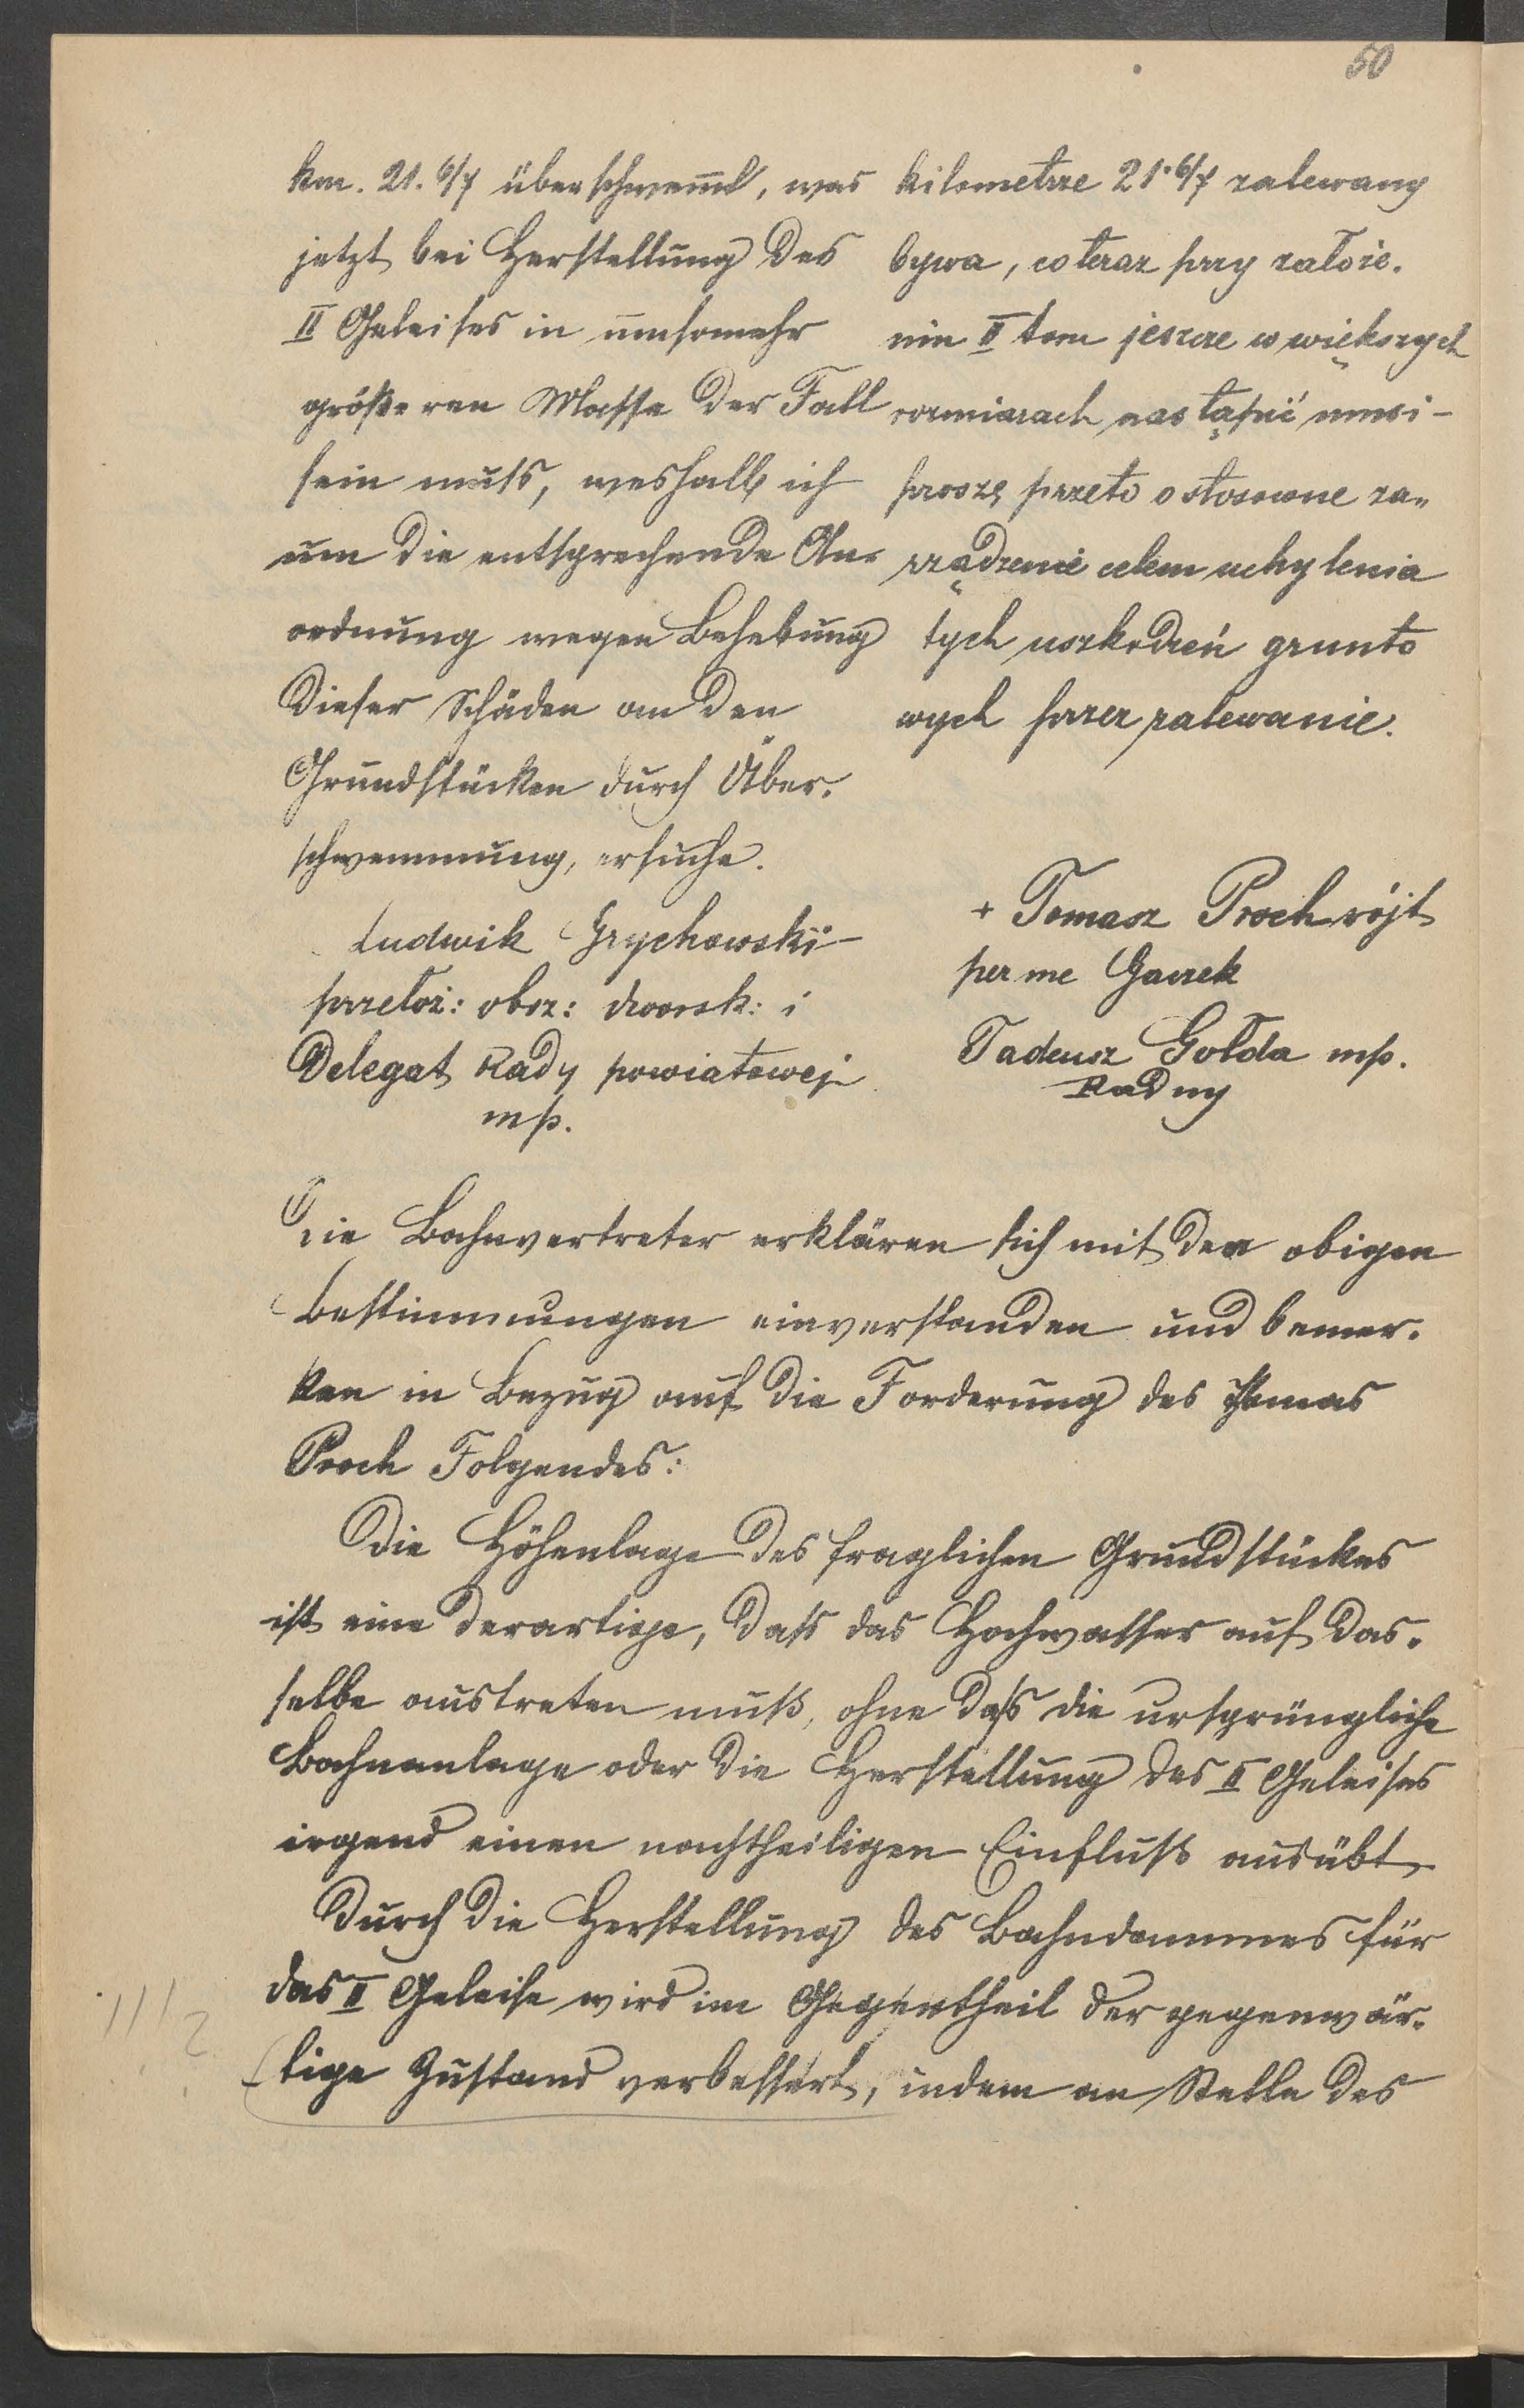 50
km. 21. 6/7 überschwemmt, was
jetzt bei Herstellung des
II Geleises in umsomehr
größeren Masse der Fall
sein muß, weshalb ich
um die entsprechende An-
ordnung wegen Behebung
dieser Schäden an den
Grundstücken durch Über-
schwemmung, ersuche.
Ludwik Grychowski
przełoż: obsz: dworsk: i
Delegat Rady powiatowej
mp.
kilometrze 21. 6/7 zalewany
bywa, co teraz przy założe-
nin II tem jeszcze w większych
rozmiarach nastąpić musi -
proszę przeto o stosowne za-
rządzenie celem uchylenia
tych uszkodzeń grunto
wych przez zalewanie.
+ Tomasz Proch wójt
per me Gawek
Tadeusz Gołda mp.
Radny
Die Bahnvertreter erklären sich mit den obigen
Bestimmungen einverstanden und bemer-
ken in Bezug auf die Forderung des Thomas
Proch Folgendes:
Die Höhenlage des fraglichen Grundstückes
ist eine derartige, daß das Hochwasser auf das-
selbe austreten muß, ohne daß die ursprüngliche
Bahnanlage oder die Herstellung des II Geleises
irgend einen nachtheiligen Einfluß ausübt.
Durch die Herstellung des Bahndammes für
das II Geleise wird im Gegentheil der gegenwär-
tige Zustand verbessert, indem an Stelle des
!!!?